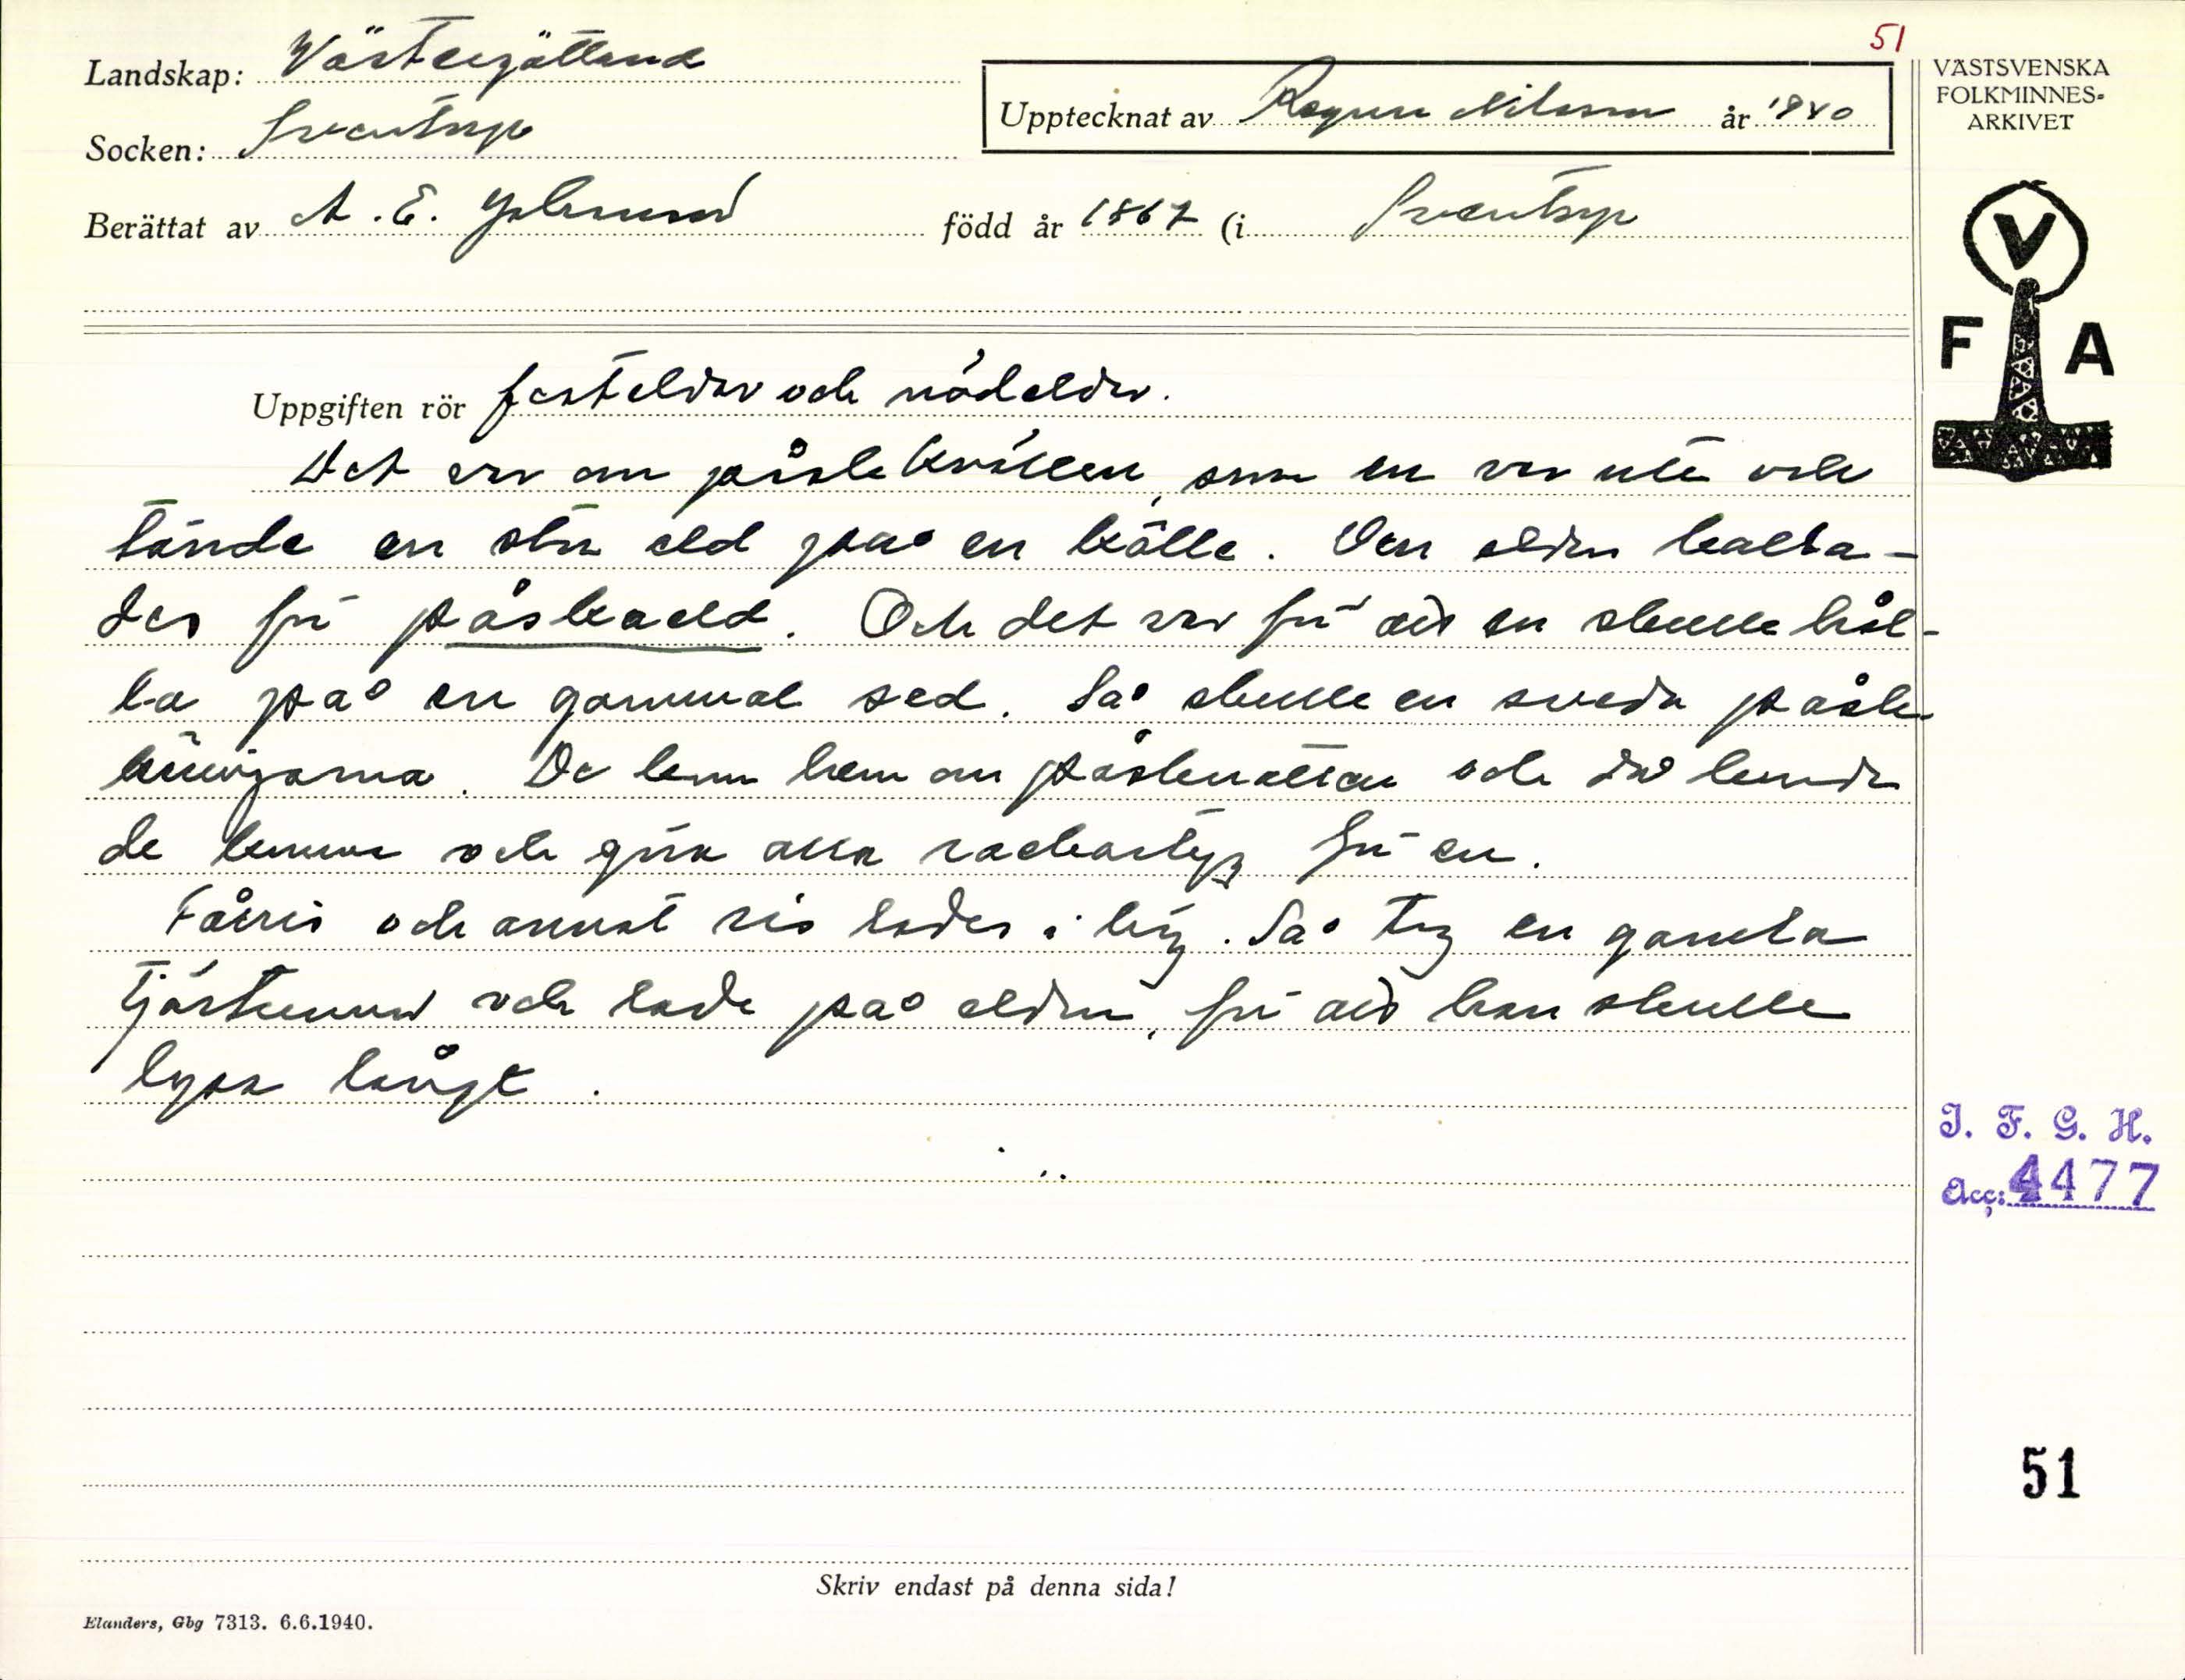 51
Landskap: Västergötland
Socken: Sventorp
Upptecknat av Ragnar Nilsson år 1940
Berättat av A. E. född år 1867 (i Sventorp
VÄSTSVENSKA
FOLKMINNES-
ARKIVET
V
F A
Uppgiften rör festeldar och nödeldar.
Det var om påskekvällen, som en var ute och
tände en stor eld på en kölle. Den elden kalla-
des för påskaeld. Och det var för att en skulle hål-
la på en gammal sed. Så skulle en sveda påske-
käringarna. De kom hem om påskenatten och då kunde
de komma och göra alla rackartyg för en.
Fåtris och annat ris lades i hög. Så tog en gamla
tjärtunnor och lade på elden, för att han skulle
lysa långt.
I. F. G. H.
Acc: 4477
51
Skriv endast på denna sida!
Elanders, Gbg 7313. 6.6.1940.